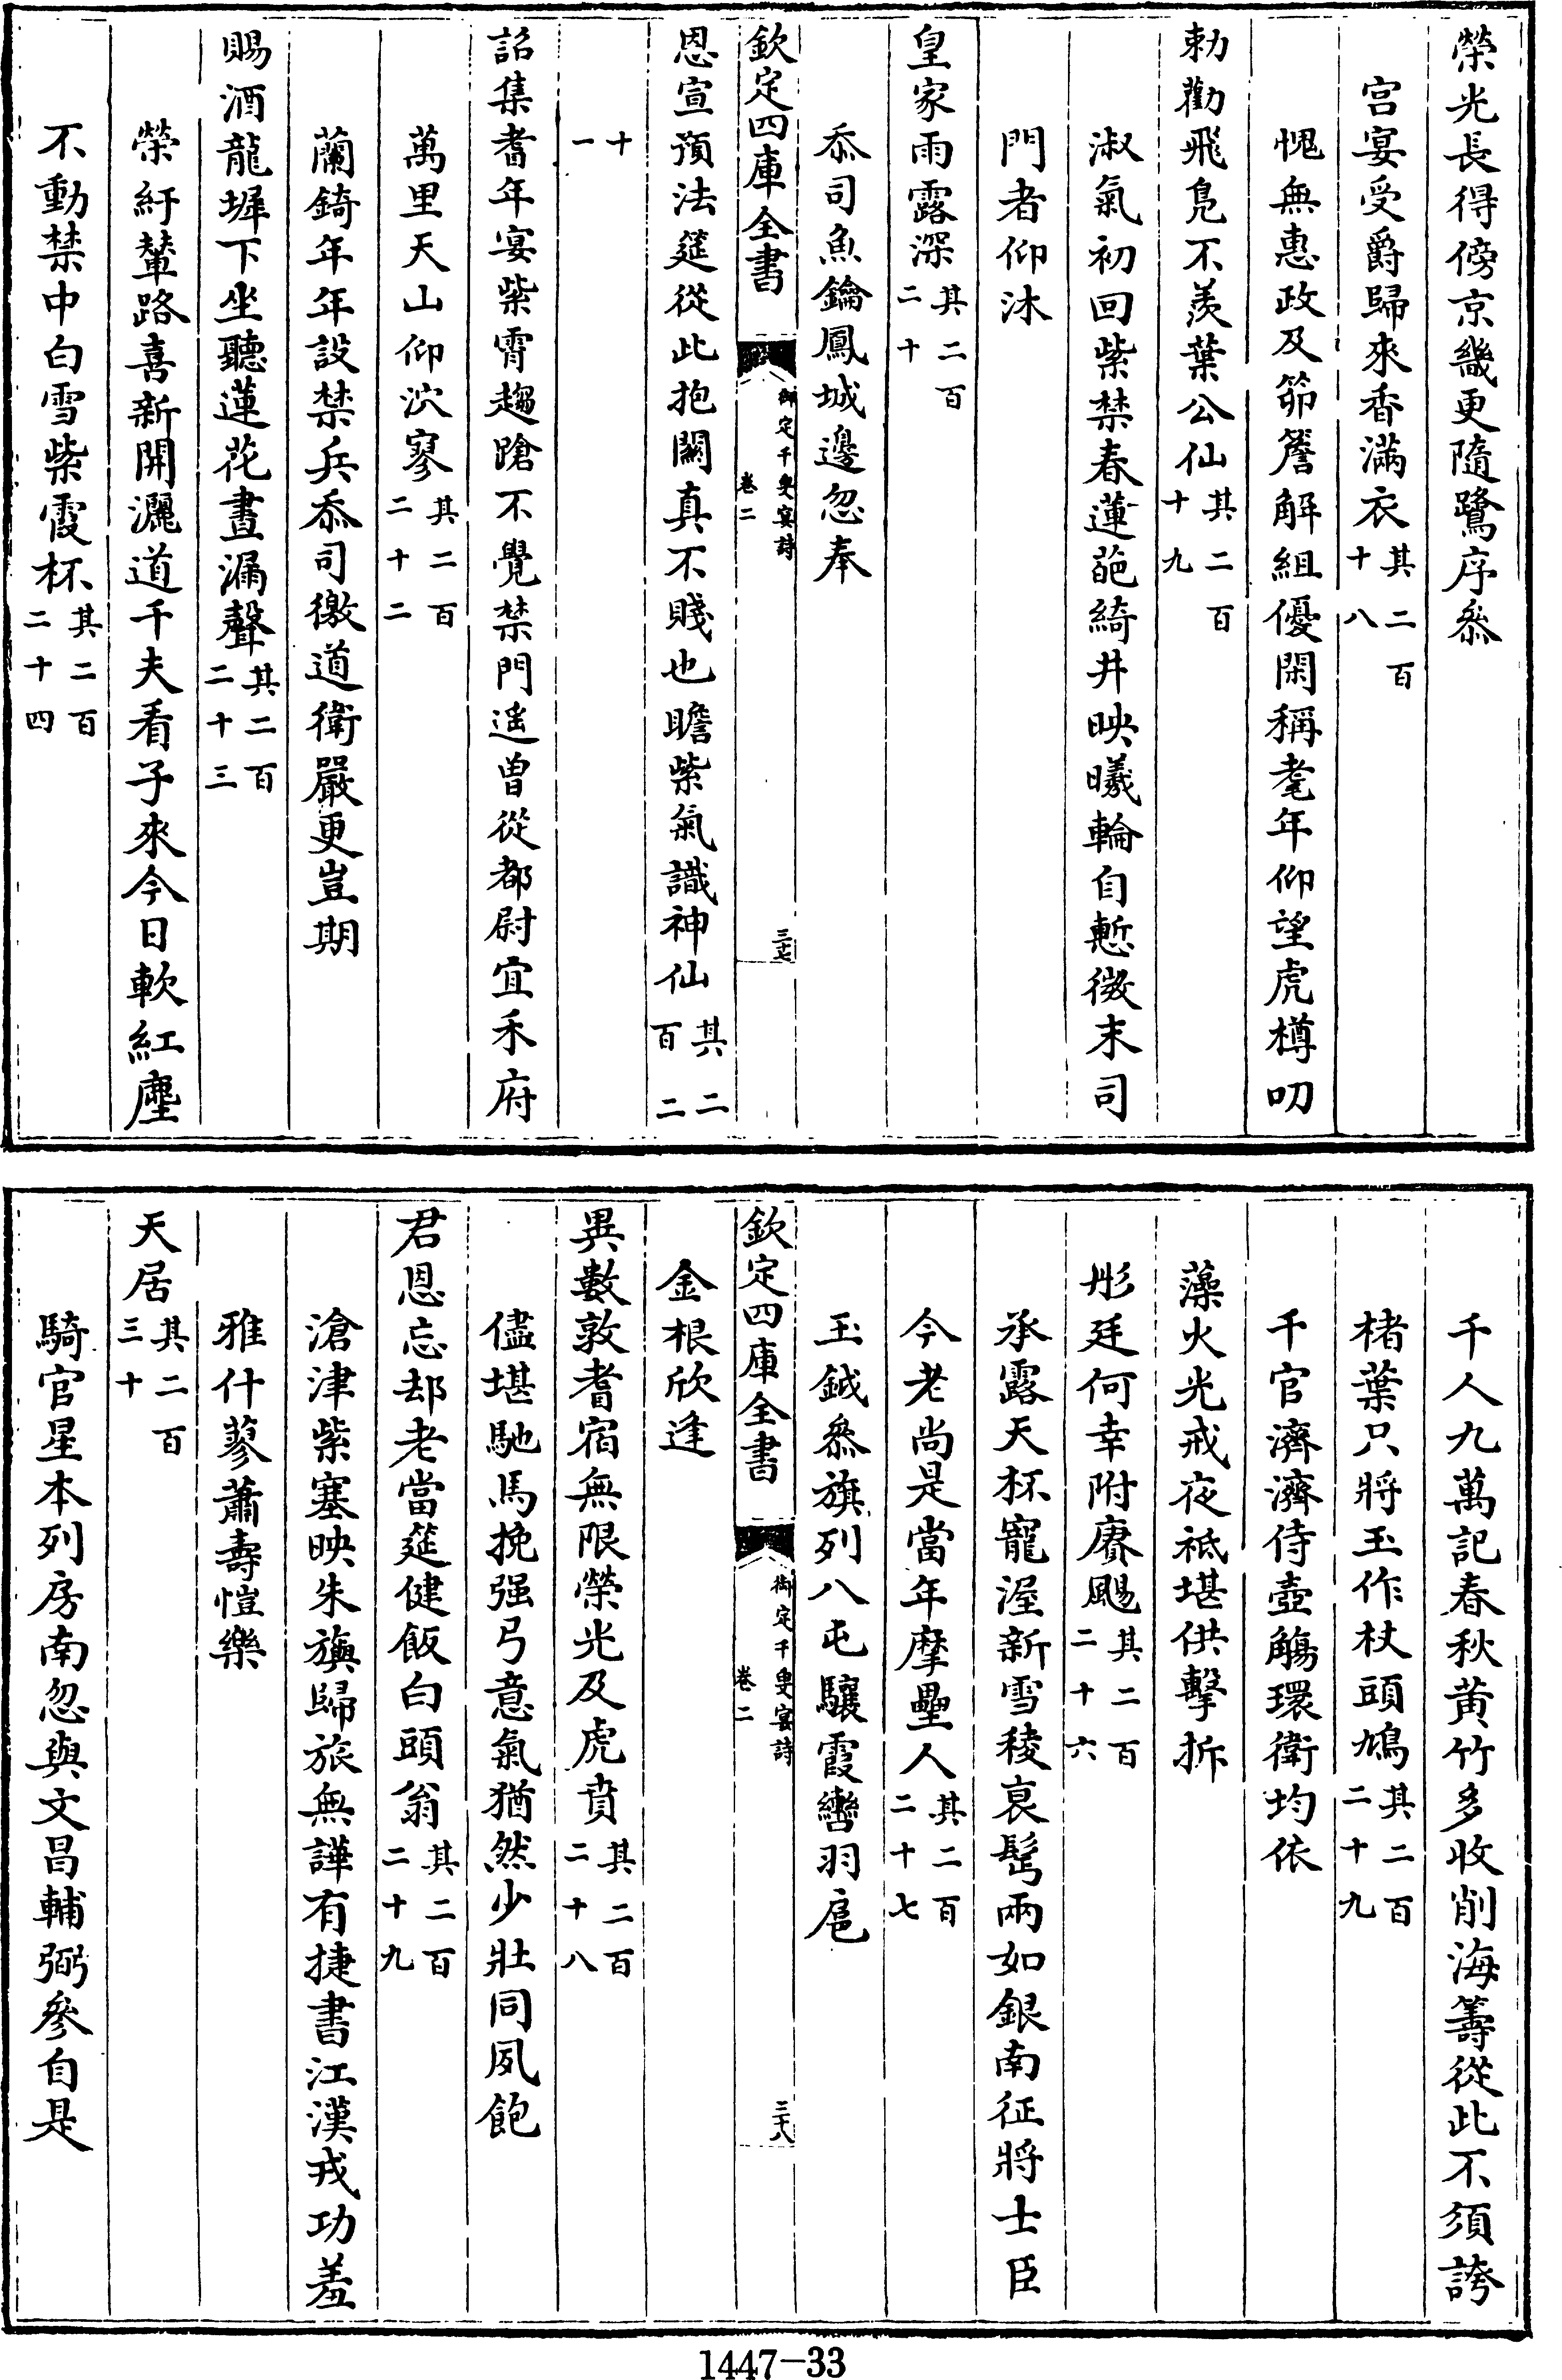 榮光長得傍京畿更隨鷺序叅
宮宴受爵歸來香滿衣其二百十八
愧無惠政及茆簷解組優閑稱耄年仰望虎樽叨
勅勸飛鳬不羨葉公仙其二百十九
淑氣初回紫禁春蓮葩綺井映曦輪自慙微末司
門者仰沐
皇家雨露深其二百二十
叅司魚鑰鳳城邊忽奉
欽定四庫全書
御定千叟宴詩
卷二
三七
恩宣預法筵從此抱關真不賤也瞻紫氣識神仙其二百二
十一
詔集耆年宴紫霄趨蹌不覺禁門遥曾從都尉宜禾府
萬里天山仰泬寥其二百二十二
蘭錡年年設禁兵叅司徼道衛嚴更豈期
賜酒龍墀下坐聽蓮花晝漏聲其二百二十三
縈紆輦路喜新開灑道千夫看子來今日軟紅塵
不動禁中白雪紫霞杯其二百二十四
千人九萬記春秋黄竹多收削海籌從此不須誇
楮葉只將玉作杖頭鳩其二百二十九
千官濟濟侍壺觴環衛均依
藻火光戒夜祗堪供擊拆
彤廷何幸附賡颺其二百二十六
承露天杯寵渥新雪稜哀髩兩如銀南征將士臣
今老尚是當年摩壘人其二百二十七
玉鉞叅旗列八屯驤霞轡羽扈
欽定四庫全書
御定千叟宴詩
卷二
三十八
金根欣逢
異數敦耆宿無限榮光及虎賁其二百二十八
儘堪馳馬挽强弓意氣猶然少壯同夙飽
君恩忘却老當筵健飯白頭翁其二百二十九
滄津紫塞映朱旟歸旅無譁有捷書江漢戎功羞
雅什蓼蕭壽愷樂
天居其二百三十
騎官星本列房南忽與文昌輔弼參自是
1447-33